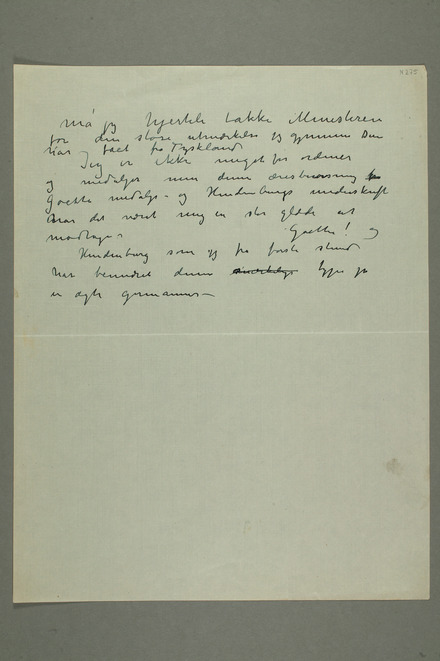 N 275
Må jeg hjertelig takke Ministeren
for den store utmærkelse jeg gjennem Dem
har fået fra Tyskland
Jeg er ikke meget for ordener
og medaljer men denne æresbevisning
Goethe medalje - og Hindenburgs underskrift
har det været mig en stor glæde at
modtage - Goethe! og
Hindenburg som jeg fra første stund
har beundret denne type på
en ægte germaner -